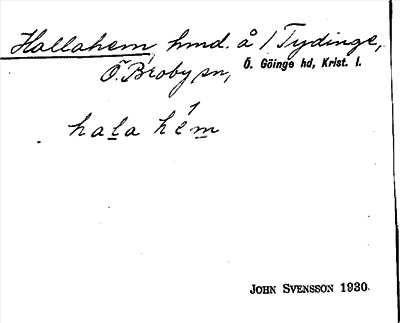 Hallahem, hmd. å 1 Tydinge,
Ö. Broby sn, Ö. Göinge hd, Krist. l.
hala hem
JOHN SVENSSON 1930.